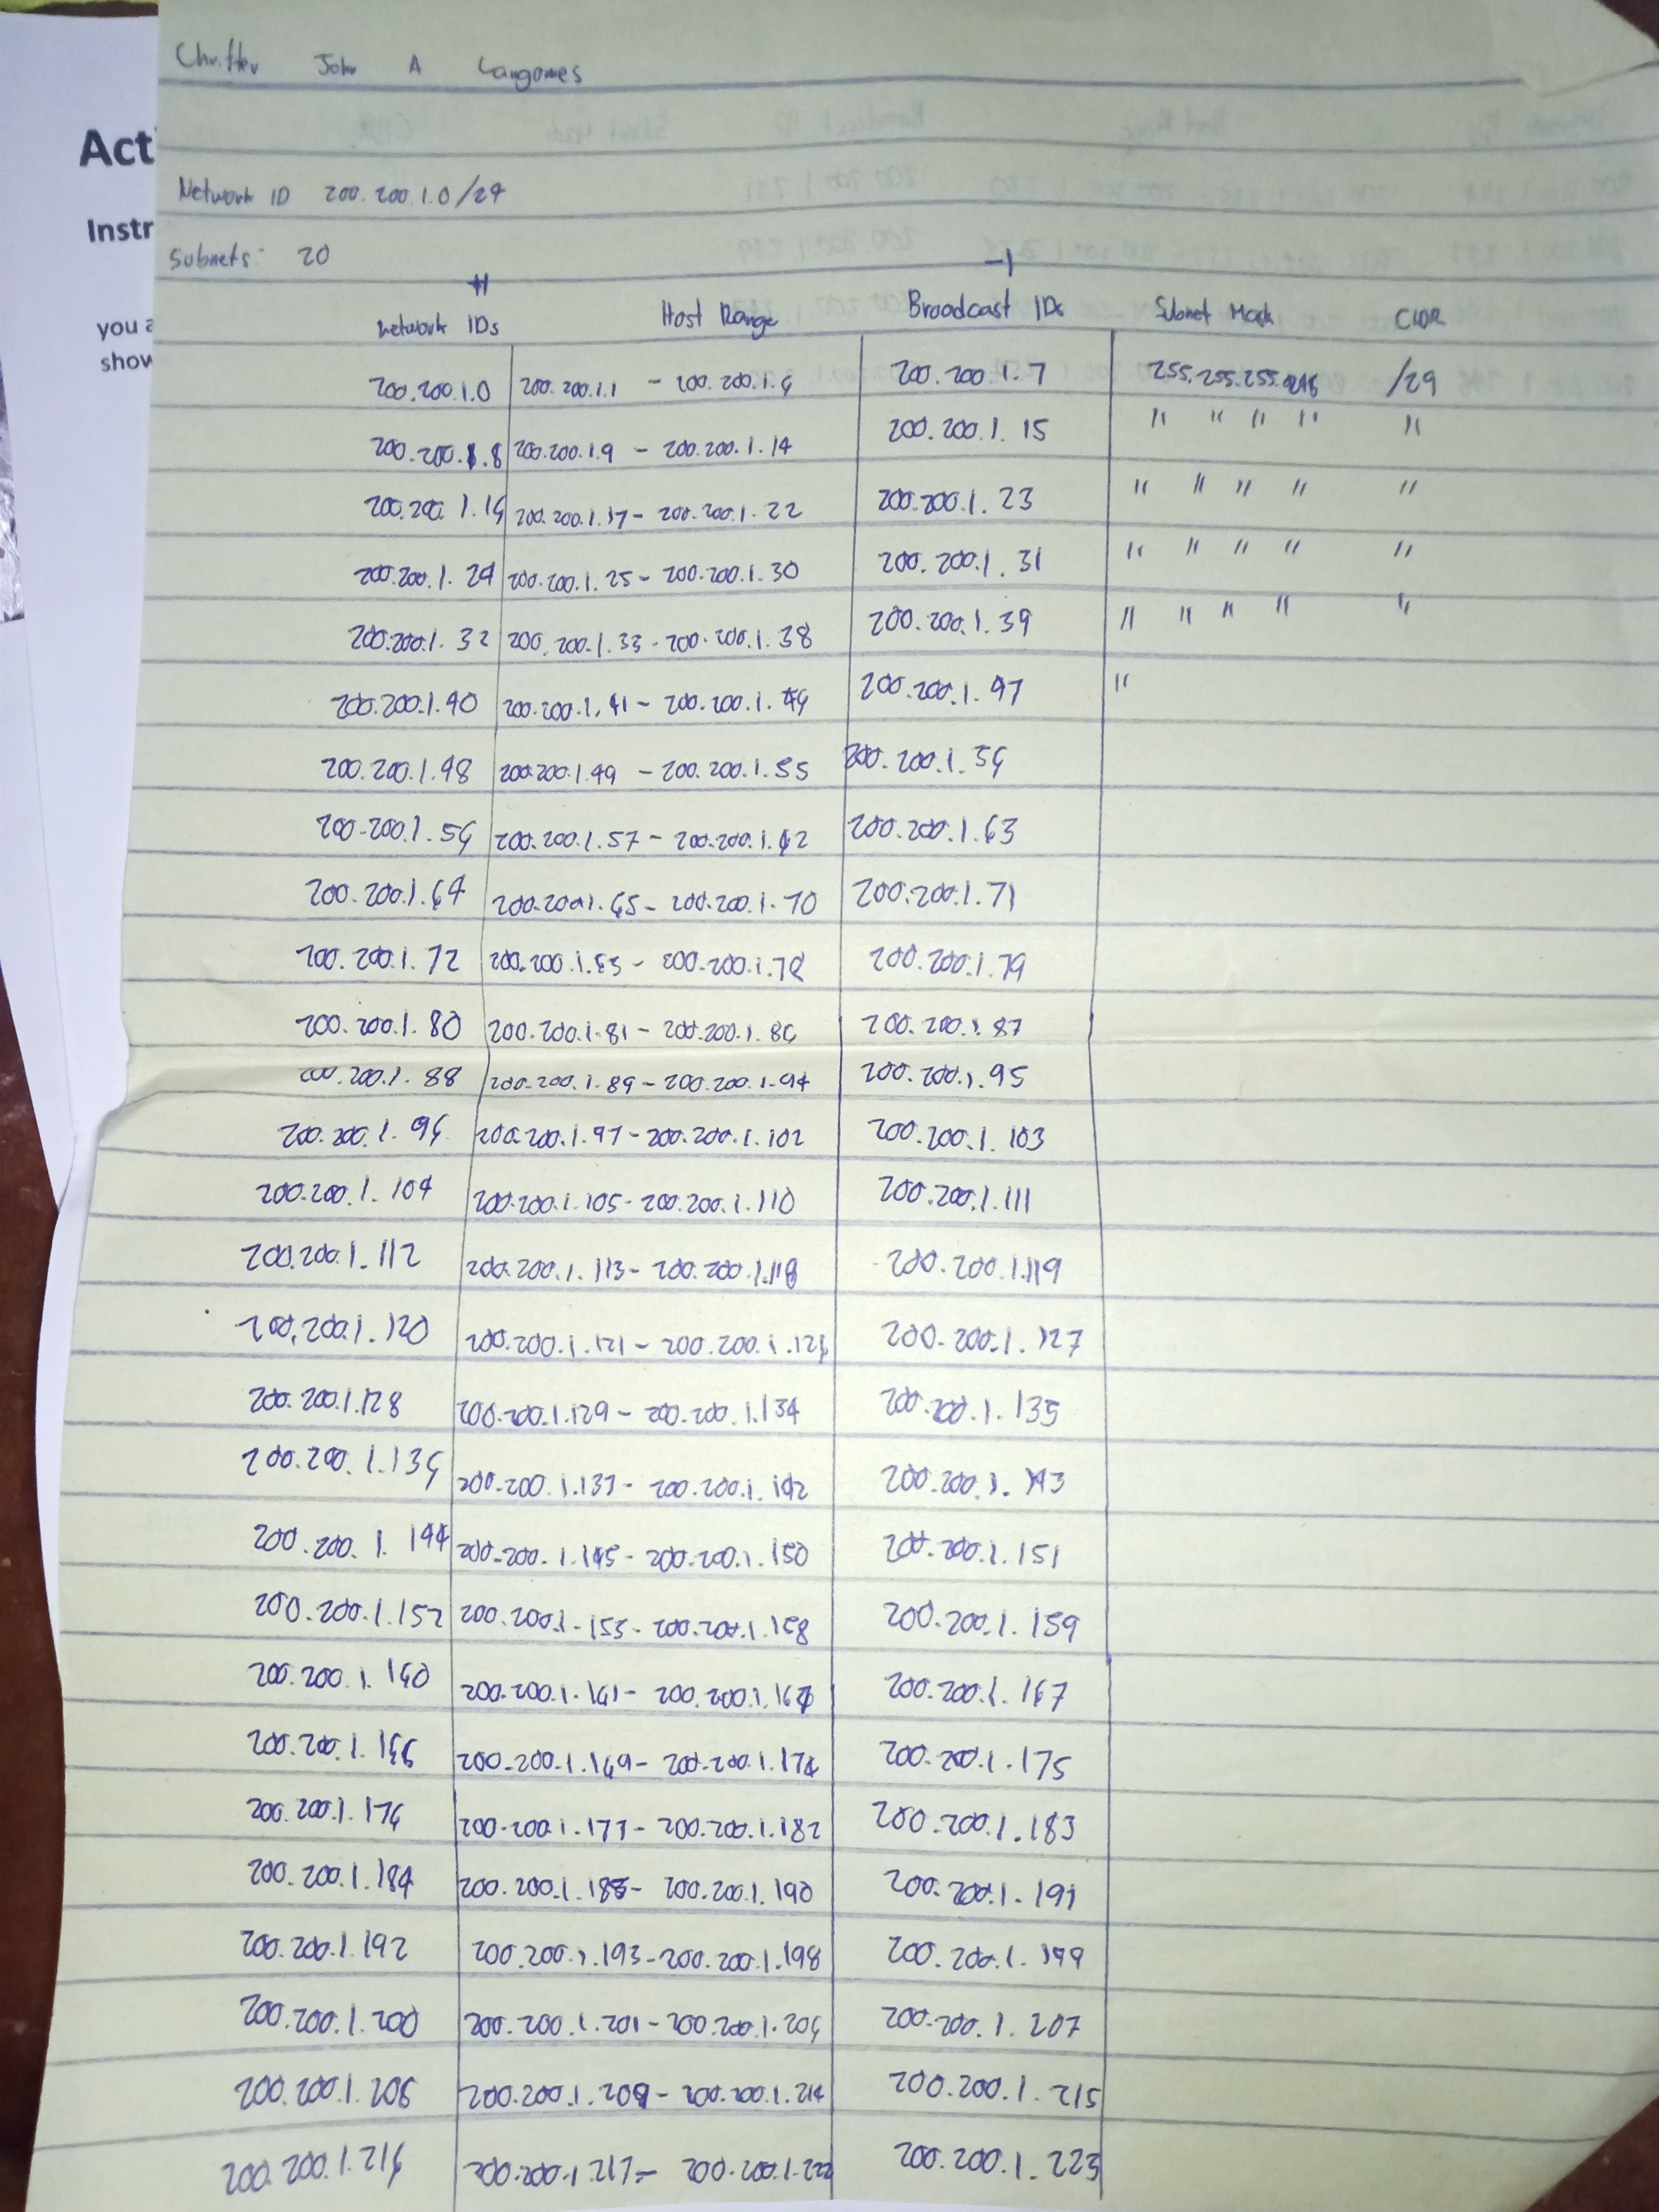 John A
Act
Network ID 200.200.1.0/24
Instr
Subnets: 20
+1 -1
you a
show
Network IDs Host Range Broadcast IDs Subnet Mask CIDR
200.200.1.0 200.200.1.1 - 200.200.1.6 200.200.1.7 255.255.255.248 /29
200.200.1.8 200.200.1.9 - 200.200.1.14 200.200.1.15 " " " " "
200.200.1.16 200.200.1.17 - 200.200.1.22 200.200.1.23 " " " " "
200.200.1.24 200.200.1.25 - 200.200.1.30 200.200.1.31 " " " " "
200.200.1.32 200.200.1.33 - 200.200.1.38 200.200.1.39 " " " " "
200.200.1.40 200.200.1.41 - 200.200.1.46 200.200.1.47 "
200.200.1.48 200.200.1.49 - 200.200.1.55 200.200.1.55
200.200.1.56 200.200.1.57 - 200.200.1.62 200.200.1.63
200.200.1.64 200.200.1.65 - 200.200.1.70 200.200.1.71
200.200.1.72 - 200.200.1.78 200.200.1.79
200.200.1.80 200.200.1.81 - 200.200.1.86 200.200.1.87
200.200.1.88 200.200.1.89 - 200.200.1.94 200.200.1.95
200.200.1.96 200.200.1.97 - 200.200.1.102 200.200.1.103
200.200.1.104 200.200.1.105 - 200.200.1.110 200.200.1.111
200.200.1.112 200.200.1.113 - 200.200.1.118 200.200.1.119
200.200.1.120 200.200.1.121 - 200.200.1.126 200.200.1.127
200.200.1.128 200.200.1.129 - 200.200.1.134 200.200.1.135
200.200.1.136 200.200.1.137 - 200.200.1.142 200.200.1.143
200.200.1.144 200.200.1.145 - 200.200.1.150 200.200.1.151
200.200.1.152 200.200.1.153 - 200.200.1.158 200.200.1.159
200.200.1.160 200.200.1.161 - 200.200.1.162 200.200.1.167
200.200.1.168 200.200.1.169 - 200.200.1.174 200.200.1.175
200.200.1.176 200.200.1.177 - 200.200.1.182 200.200.1.183
200.200.1.184 200.200.1.185 - 200.200.1.190 200.200.1.191
200.200.1.192 200.200.1.193 - 200.200.1.198 200.200.1.199
200.200.1.200 200.200.1.201 - 200.200.1.206 200.200.1.207
200.200.1.208 200.200.1.209 - 200.200.1.214 200.200.1.215
200.200.1.216 200.200.1.217 - 200.200.1.222 200.200.1.223